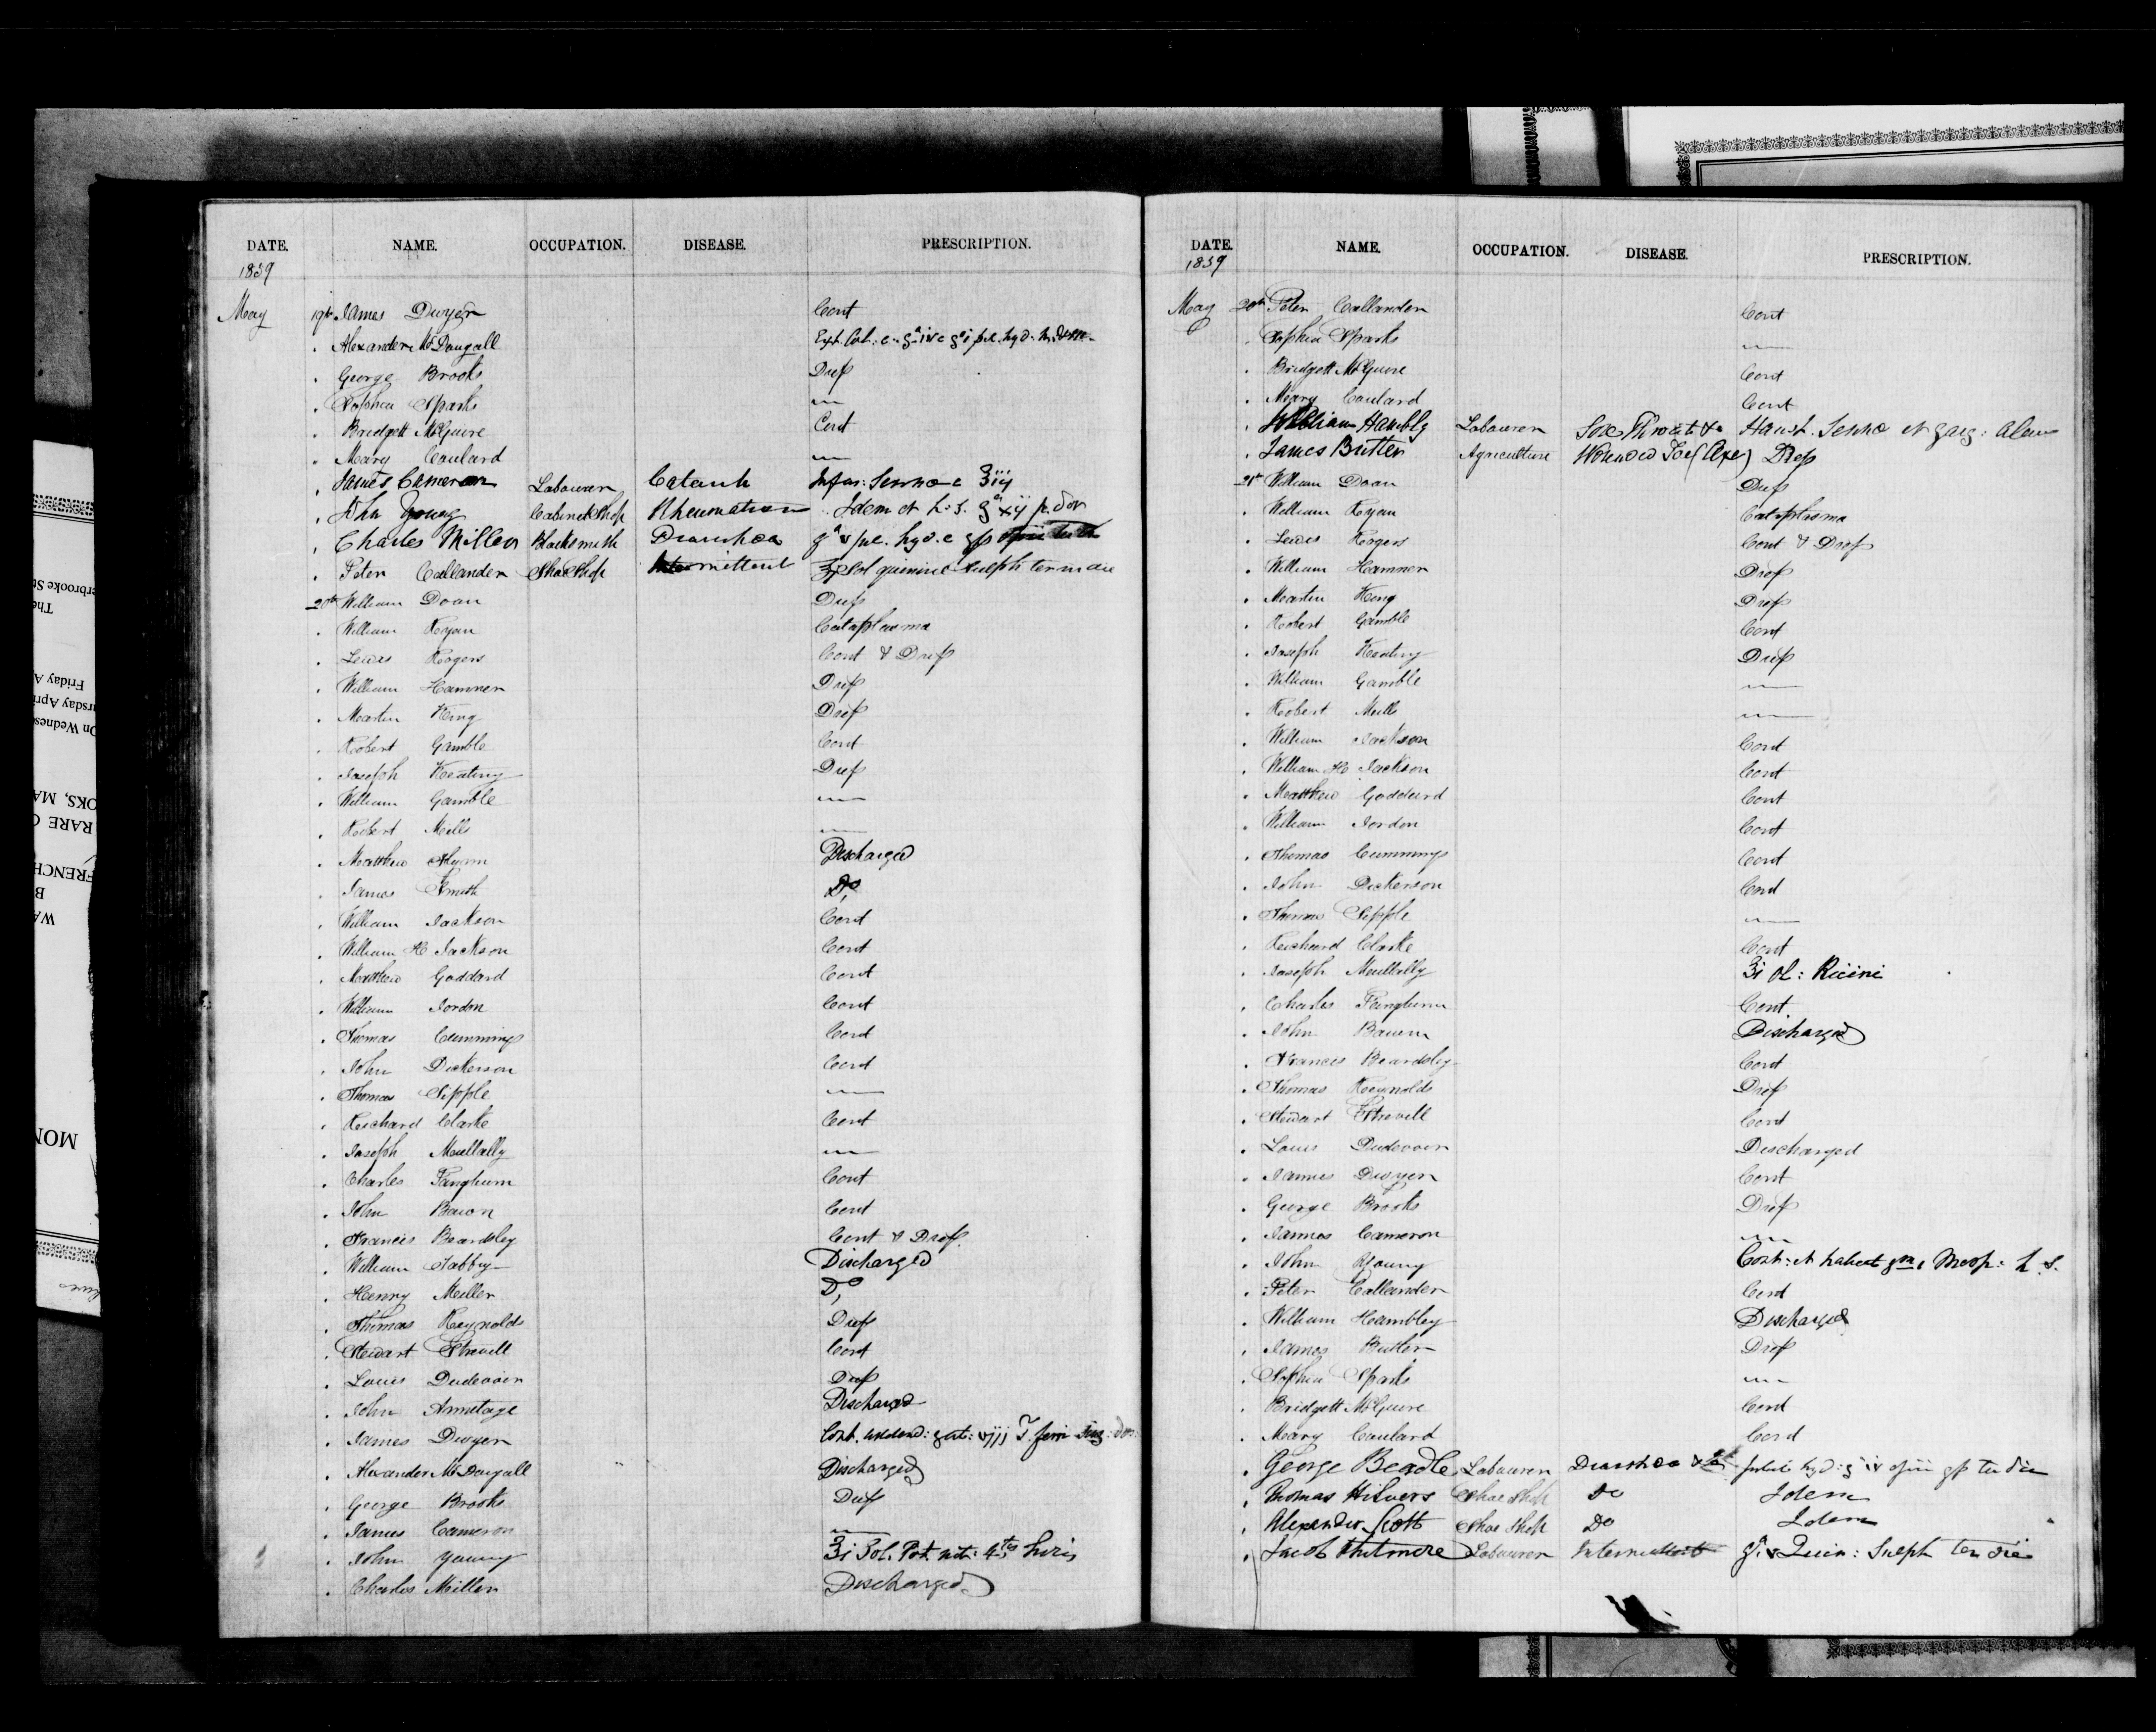 DATE. NAME. OCCUPATION. DISEASE. PRESCRIPTION.
1839
May 19th James Dwyer Cont
Alexander McDougall
George Brooks Dress
Sophia Sparks "
Bridgett McGuire Cont
Mary Coulard "
James Cameron Labourer Catarrh Infus: Senna c ℥iij
John Young Cabinet Shop Rheumatism Idem et h.s. pv. dov
Charles Miller Blacksmith Diarrhœa
Peter Callander Shoe Shop Intermittent Sol quinine Sulph ter in die
20th William Doan Dress
William Ryan Cataplasma
Lewis Rogers Cont & Dress
William Hamner Dress
Martin King Dress
Robert Gamble Cont
Joseph Keating Dress
William Gamble "
Robert Mills "
Matthew Flynn Discharged
James Smith Do
William Jackson Cont
William H Jackson Cont
Matthew Goddard Cont
William Jordon Cont
Thomas Cummings Cont
John Dickerson Cont
Thomas Sipple "
Richard Clarke Cont
Joseph Mullally "
Charles Fangburn Cont
John Bacon Cont
Francis Beardsley Cont & Dress
William Tabby Discharged
Henry Miller Do
Thomas Reynolds Dress
Stewart Strevell Cont
Louis Dudevoir Dress
John Armitage Discharged
James Dwyer Cont.
Alexander McDougall Discharged
George Brooks Dress
James Cameron "
John Young ℥i Sol. Pot. nit: 4tis horis
Charles Miller Discharged
DATE. NAME. OCCUPATION. DISEASE. PRESCRIPTION.
1839
May 20th Peter Callander Cont
Sophia Sparks "
Bridgett McGuire Cont
Mary Coulard Cont
William Hambly Labourer Sore Throat Haust. Senna et garg: Alum
James Butler Agriculture Wounded Toe (Axe) Dress
21st William Doan Dress
William Ryan Cataplasma
Lewis Rogers Cont & Dress
William Hamner Dress
Martin King Dress
Robert Gamble Cont
Joseph Keating Dress
William Gamble "
Robert Mills "
William Jackson Cont
William H Jackson Cont
Matthew Goddard Cont
William Jordon Cont
Thomas Cummings Cont
John Dickerson Cont
Thomas Sipple "
Richard Clarke Cont
Joseph Mullally ℥i Ol: Ricini
Charles Fangburn Cont
John Bacon Discharged
Francis Beardsley Cont
Thomas Reynolds Dress
Stewart Strevell Cont
Louis Dudevoir Discharged
James Dwyer Cont
George Brooks Dress
James Cameron "
John Young Cont: et habeat h.s.
Peter Callander Cont
William Hambley Discharged
James Butler Dress
Sophia Sparks "
Bridgett McGuire Cont
Mary Coulard Cont
George Beadle Labourer Diarrhœa ter die
Thomas Hilvers Shoe Shop Do Idem
Alexander Scott Shoe Shop Do Idem
Jacob Whitmore Labourer Intermittent Quin: Sulph ter die